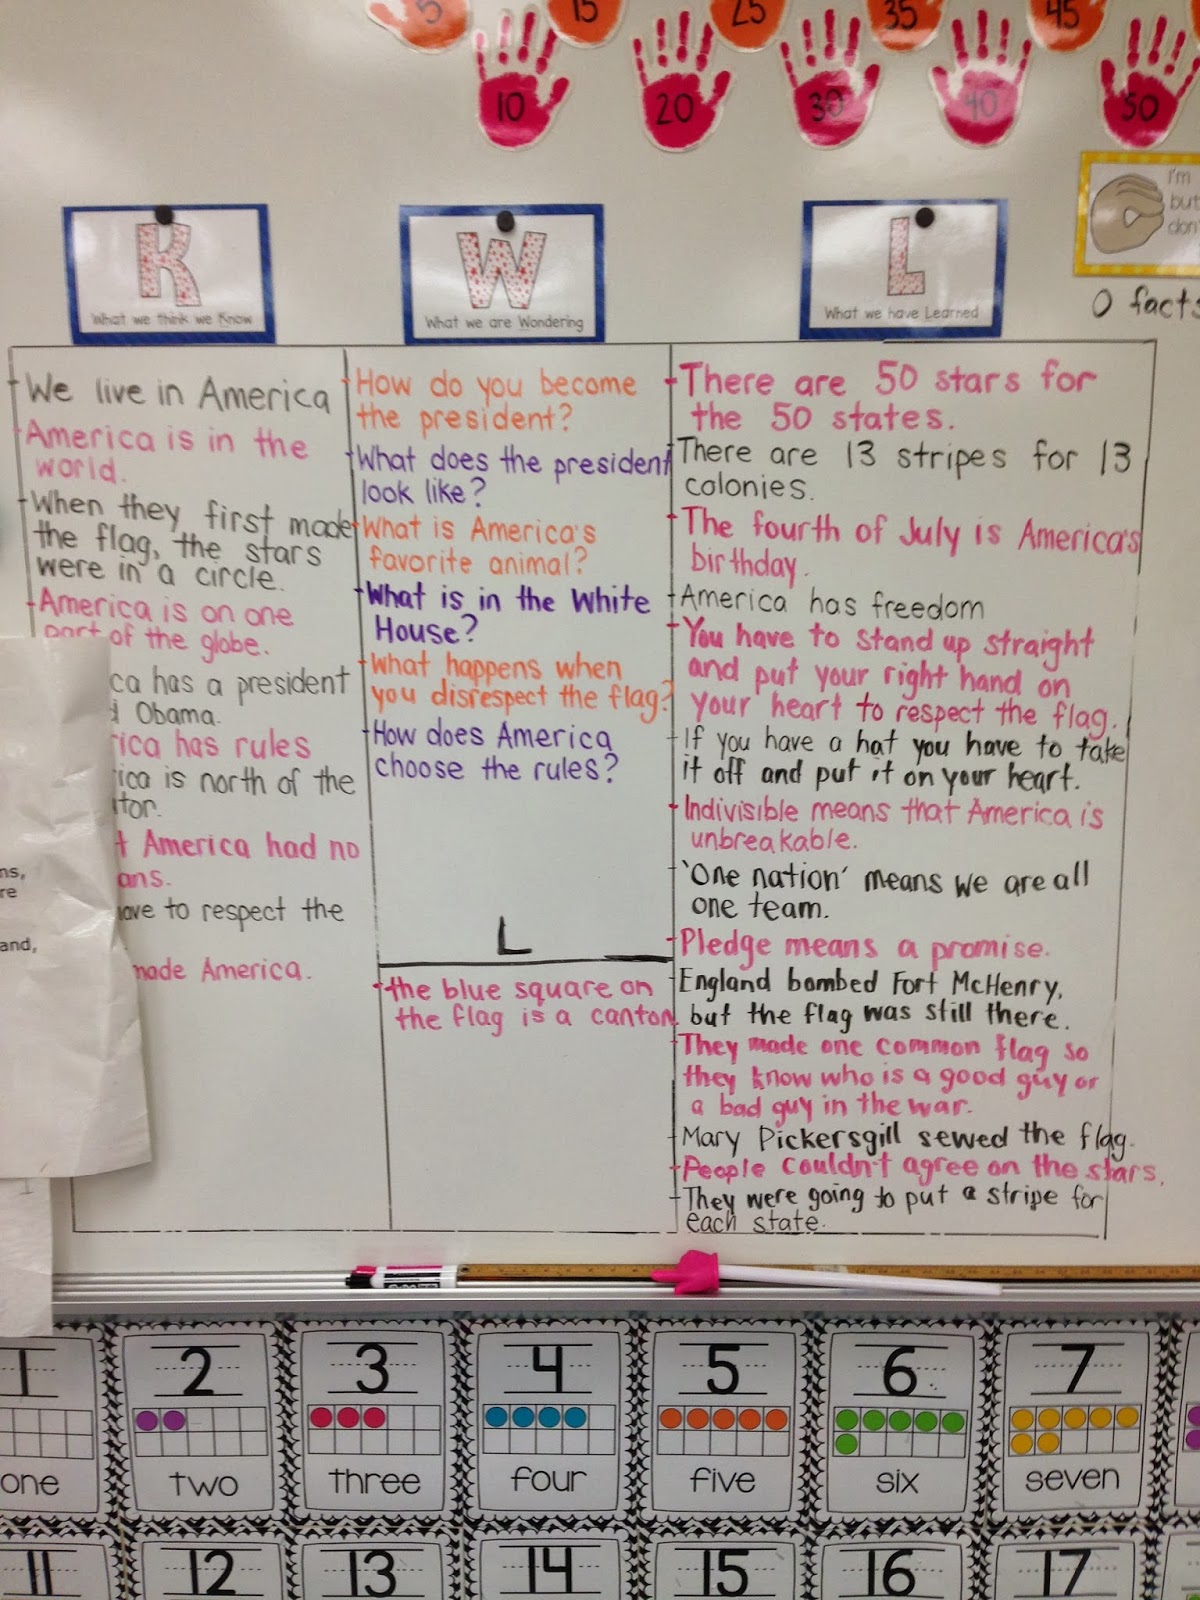 5
15
25
35
45
10
20
30
40
50
I'm
but
don'
0 facts
K
What we think we Know
We live in America
America is in the
world.
When they first made
the flag, the stars
were in a circle.
America is on one
part of the globe.
ca has a president
Obama.
rica has rules
ica is north of the
tor.
t America had no
ans.
ave to respect the
made America.
ns,
re
and,
W
What we are Wondering
How do you become
the president?
What does the president
look like?
What is America's
favorite animal?
What is in the White
House?
What happens when
you disrespect the flag?
How does America
choose the rules?
L
the blue square on
the flag is a canton
L
What we have Learned
There are 50 stars for
the 50 states.
There are 13 stripes for 13
colonies.
The fourth of July is America's
birthday.
America has freedom
You have to stand up straight
and put your right hand on
your heart to respect the flag.
If you have a hat you have to take
it off and put it on your heart.
Indivisible means that America is
unbreakable.
'One nation' means we are all
one team.
Pledge means a promise.
England bombed Fort McHenry,
but the flag was still there.
They made one common flag so
they know who is a good guy or
a bad guy in the war.
Mary Pickersgill sewed the flag.
People couldn't agree on the stars.
They were going to put a stripe for
each state.
1
2
3
4
5
6
7
one
two
three
four
five
six
seven
11
12
13
14
15
16
17